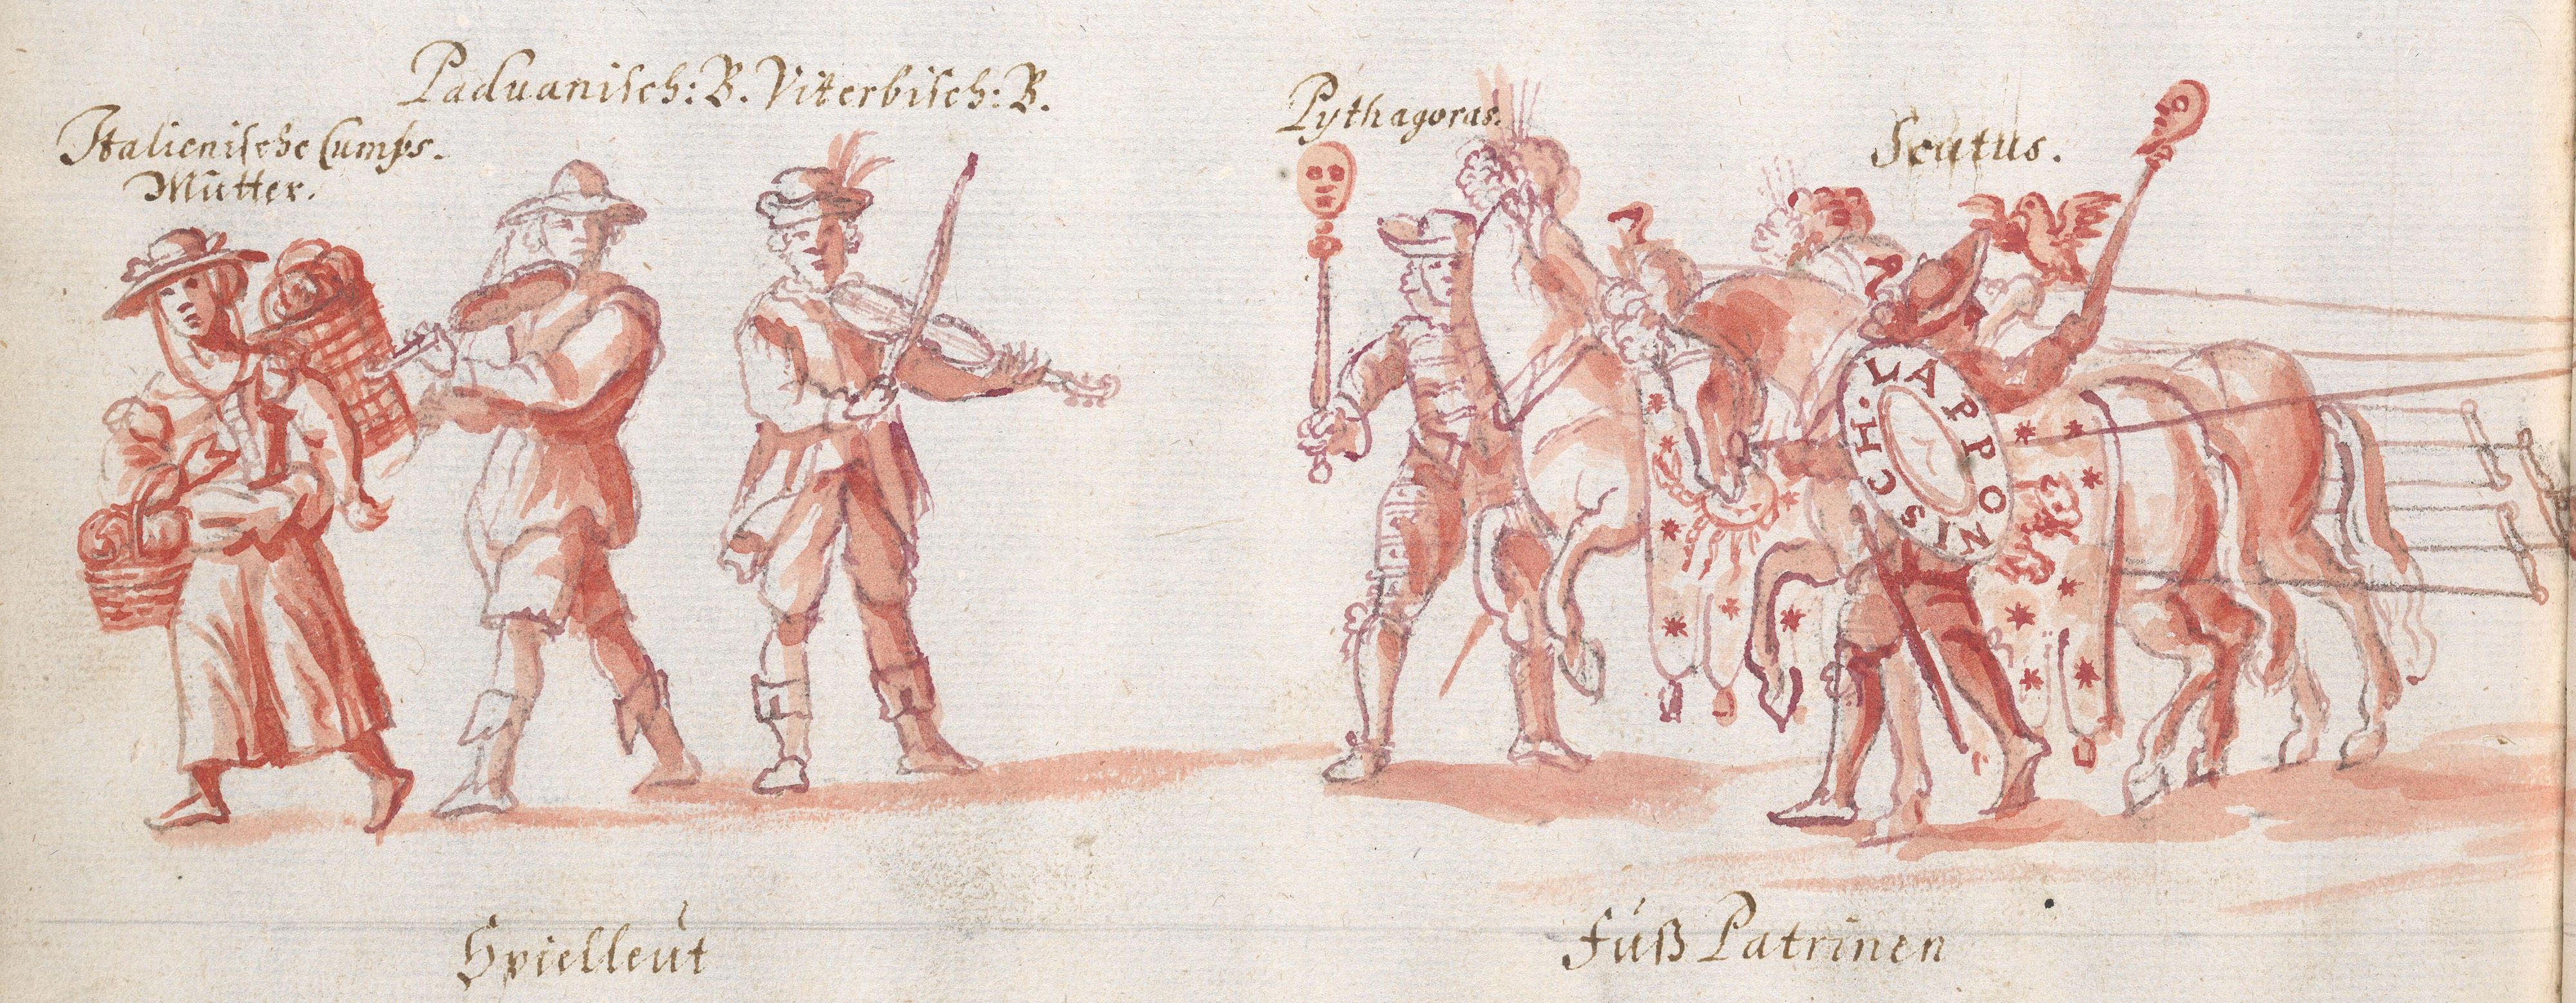 Paduanisch: B. Viterbisch: B.
Italienische Cumps.
Mutter.
Pythagoras.
Scutus.
LAPPONISCH.
Spielleut
Fuß Patrinen